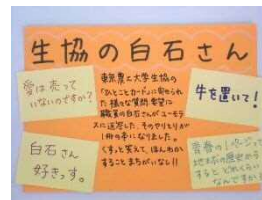 生協の白石さん
愛は売って
いないのですか?
東京農工大学生協の
「ひとことカード」に寄せられ
た様々な質問・要望に
職員の白石さんがユーモラ
スに返答した、そのやりとりが
1冊の本になりました。
くすっと笑えて、ほんわか
することまちがいなし!!
牛を置いて!
白石さん
好きっす。
青春の1ページって
地球の歴史から
するとどれくらい
なんですか?